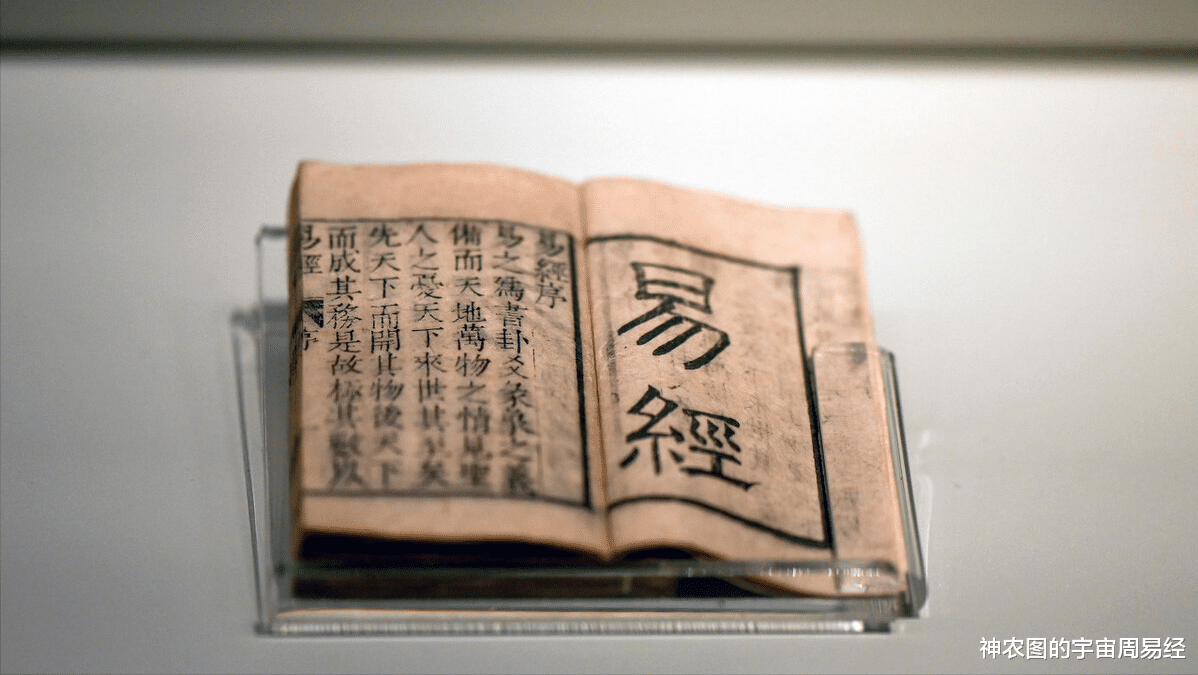 易經
易經序
易之爲書卦爻彖象之義
備而天地萬物之情見聖
人之憂天下來世其至矣
先天下而開其物後天下
而成其務是故極其數以
易經 序
神农图的宇宙周易经